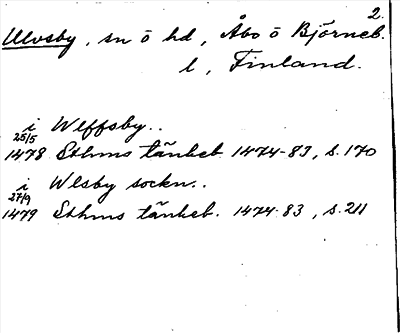 2.
Ulvsby, sn o hd, Åbo o Björneb.
l, Finland.
i Wlffsby..
25/5
1478 Sthms tänkeb. 1474-83, s. 170
i Wlsby sockn..
27/9
1479 Sthms tänkeb. 1474-83, s. 211